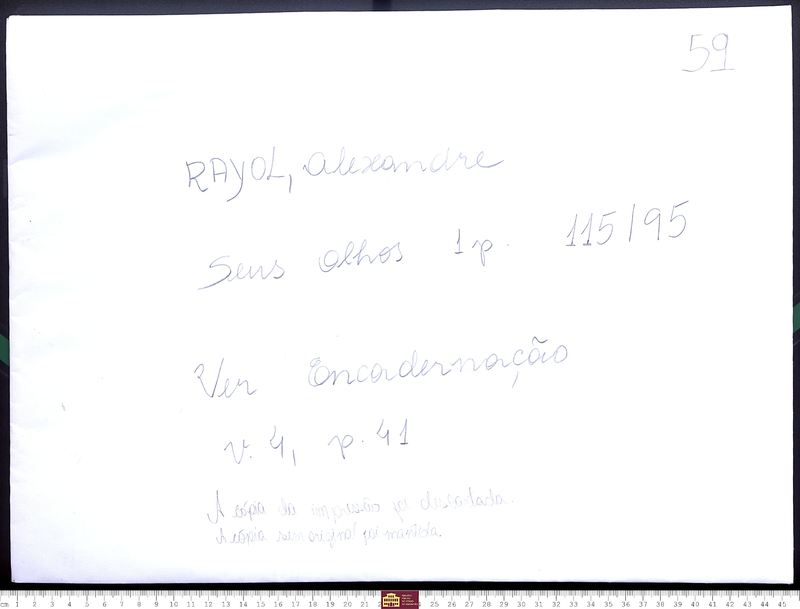 59
RAYOL, Alexandre
Seus olhos 1 p. 115/95
Ver Encadernação
v. 4, p. 41
A cópia da impressão foi descartada.
A cópia sem original foi mantida.
cm 1 2 3 4 5 6 7 8 9 10 11 12 13 14 15 16 17 18 19 20 21 25 26 27 28 29 30 31 32 33 34 35 36 37 38 39 40 41 42 43 44 45